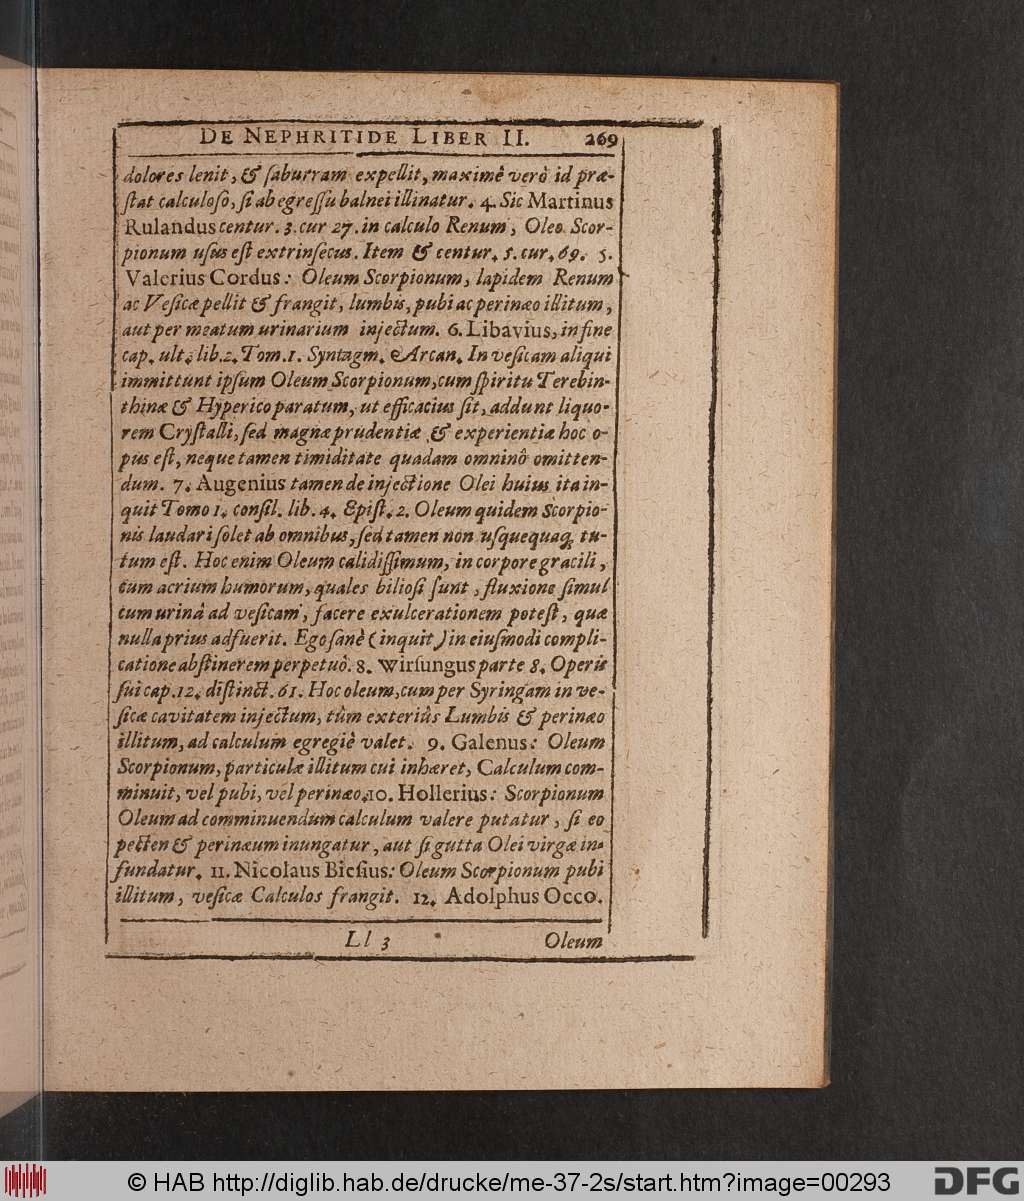 DE NEPHRITIDE LIBER II. 269
dolores lenit, & ſaburram expellit, maximè verò id præ-
ſtat calculoſo, ſi ab egreſſu balnei illinatur. 4. Sic Martinus
Rulandus centur. 3. cur 27. in calculo Renum, Oleo Scor-
pionum uſus eſt extrinſecus. Item & centur. 5. cur. 69. 5.
Valerius Cordus: Oleum Scorpionum, lapidem Renum
ac Veſicæ pellit & frangit, lumbis, pubi ac perinæo illitum,
aut per meatum urinarium injectum. 6. Libavius, in fine
cap. ult. lib. 2. Tom. 1. Syntagm. Arcan. In veſicam aliqui
immittunt ipſum Oleum Scorpionum, cum ſpiritu Terebin-
thinæ & Hyperico paratum, ut efficacius ſit, addunt liquo-
rem Cryſtalli, ſed magnæ prudentiæ & experientiæ hoc o-
pus eſt, neque tamen timiditate quadam omninò omitten-
dum. 7. Augenius tamen de injectione Olei huius ita in-
quit Tomo 1. conſil. lib. 4. Epiſt. 2. Oleum quidem Scorpio-
nis laudari ſolet ab omnibus, ſed tamen non uſquequaq; tu-
tum eſt. Hoc enim Oleum calidiſſimum, in corpore gracili,
cum acrium humorum, quales bilioſi ſunt, fluxione ſimul
cum urinâ ad veſicam, facere exulcerationem poteſt, quæ
nulla prius adfuerit. Ego ſanè (inquit) in eiuſmodi compli-
catione abſtinerem perpetuò. 8. Wirſungus parte 8. Operis
ſui cap. 12. diſtinct. 61. Hoc oleum, cum per Syringam in ve-
ſicæ cavitatem injectum, tùm exteriùs Lumbis & perinæo
illitum, ad calculum egregiè valet. 9. Galenus: Oleum
Scorpionum, particulæ illitum cui inhæret, Calculum com-
minuit, vel pubi, vel perinæo. 10. Hollerius: Scorpionum
Oleum ad comminuendum calculum valere putatur, ſi eo
pecten & perinæum inungatur, aut ſi gutta Olei virgæ in-
fundatur. 11. Nicolaus Bieſius: Oleum Scorpionum pubi
illitum, veſicæ Calculos frangit. 12. Adolphus Occo.
Ll 3 Oleum
© HAB http://diglib.hab.de/drucke/me-37-2s/start.htm?image=00293 DFG